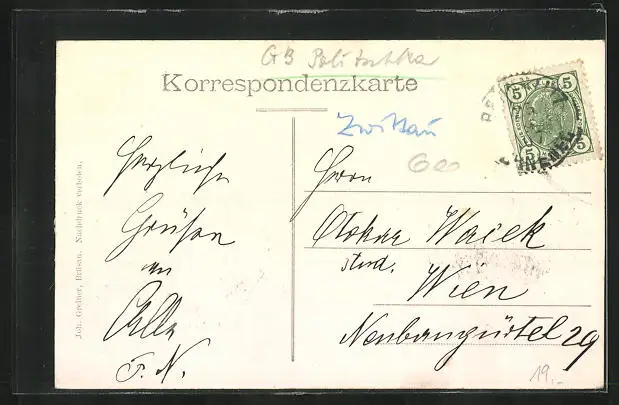 GB Politschka
Korrespondenzkarte
Zwittau
600
Herzliche
Grüßen
an
Alle
F. N.
Herrn
Otokar Wacek
stud.
Wien
Neubaugürtel 29
19.-
Joh. Greiner, Brüsau. Nachdruck verboten.
5 5
5 5